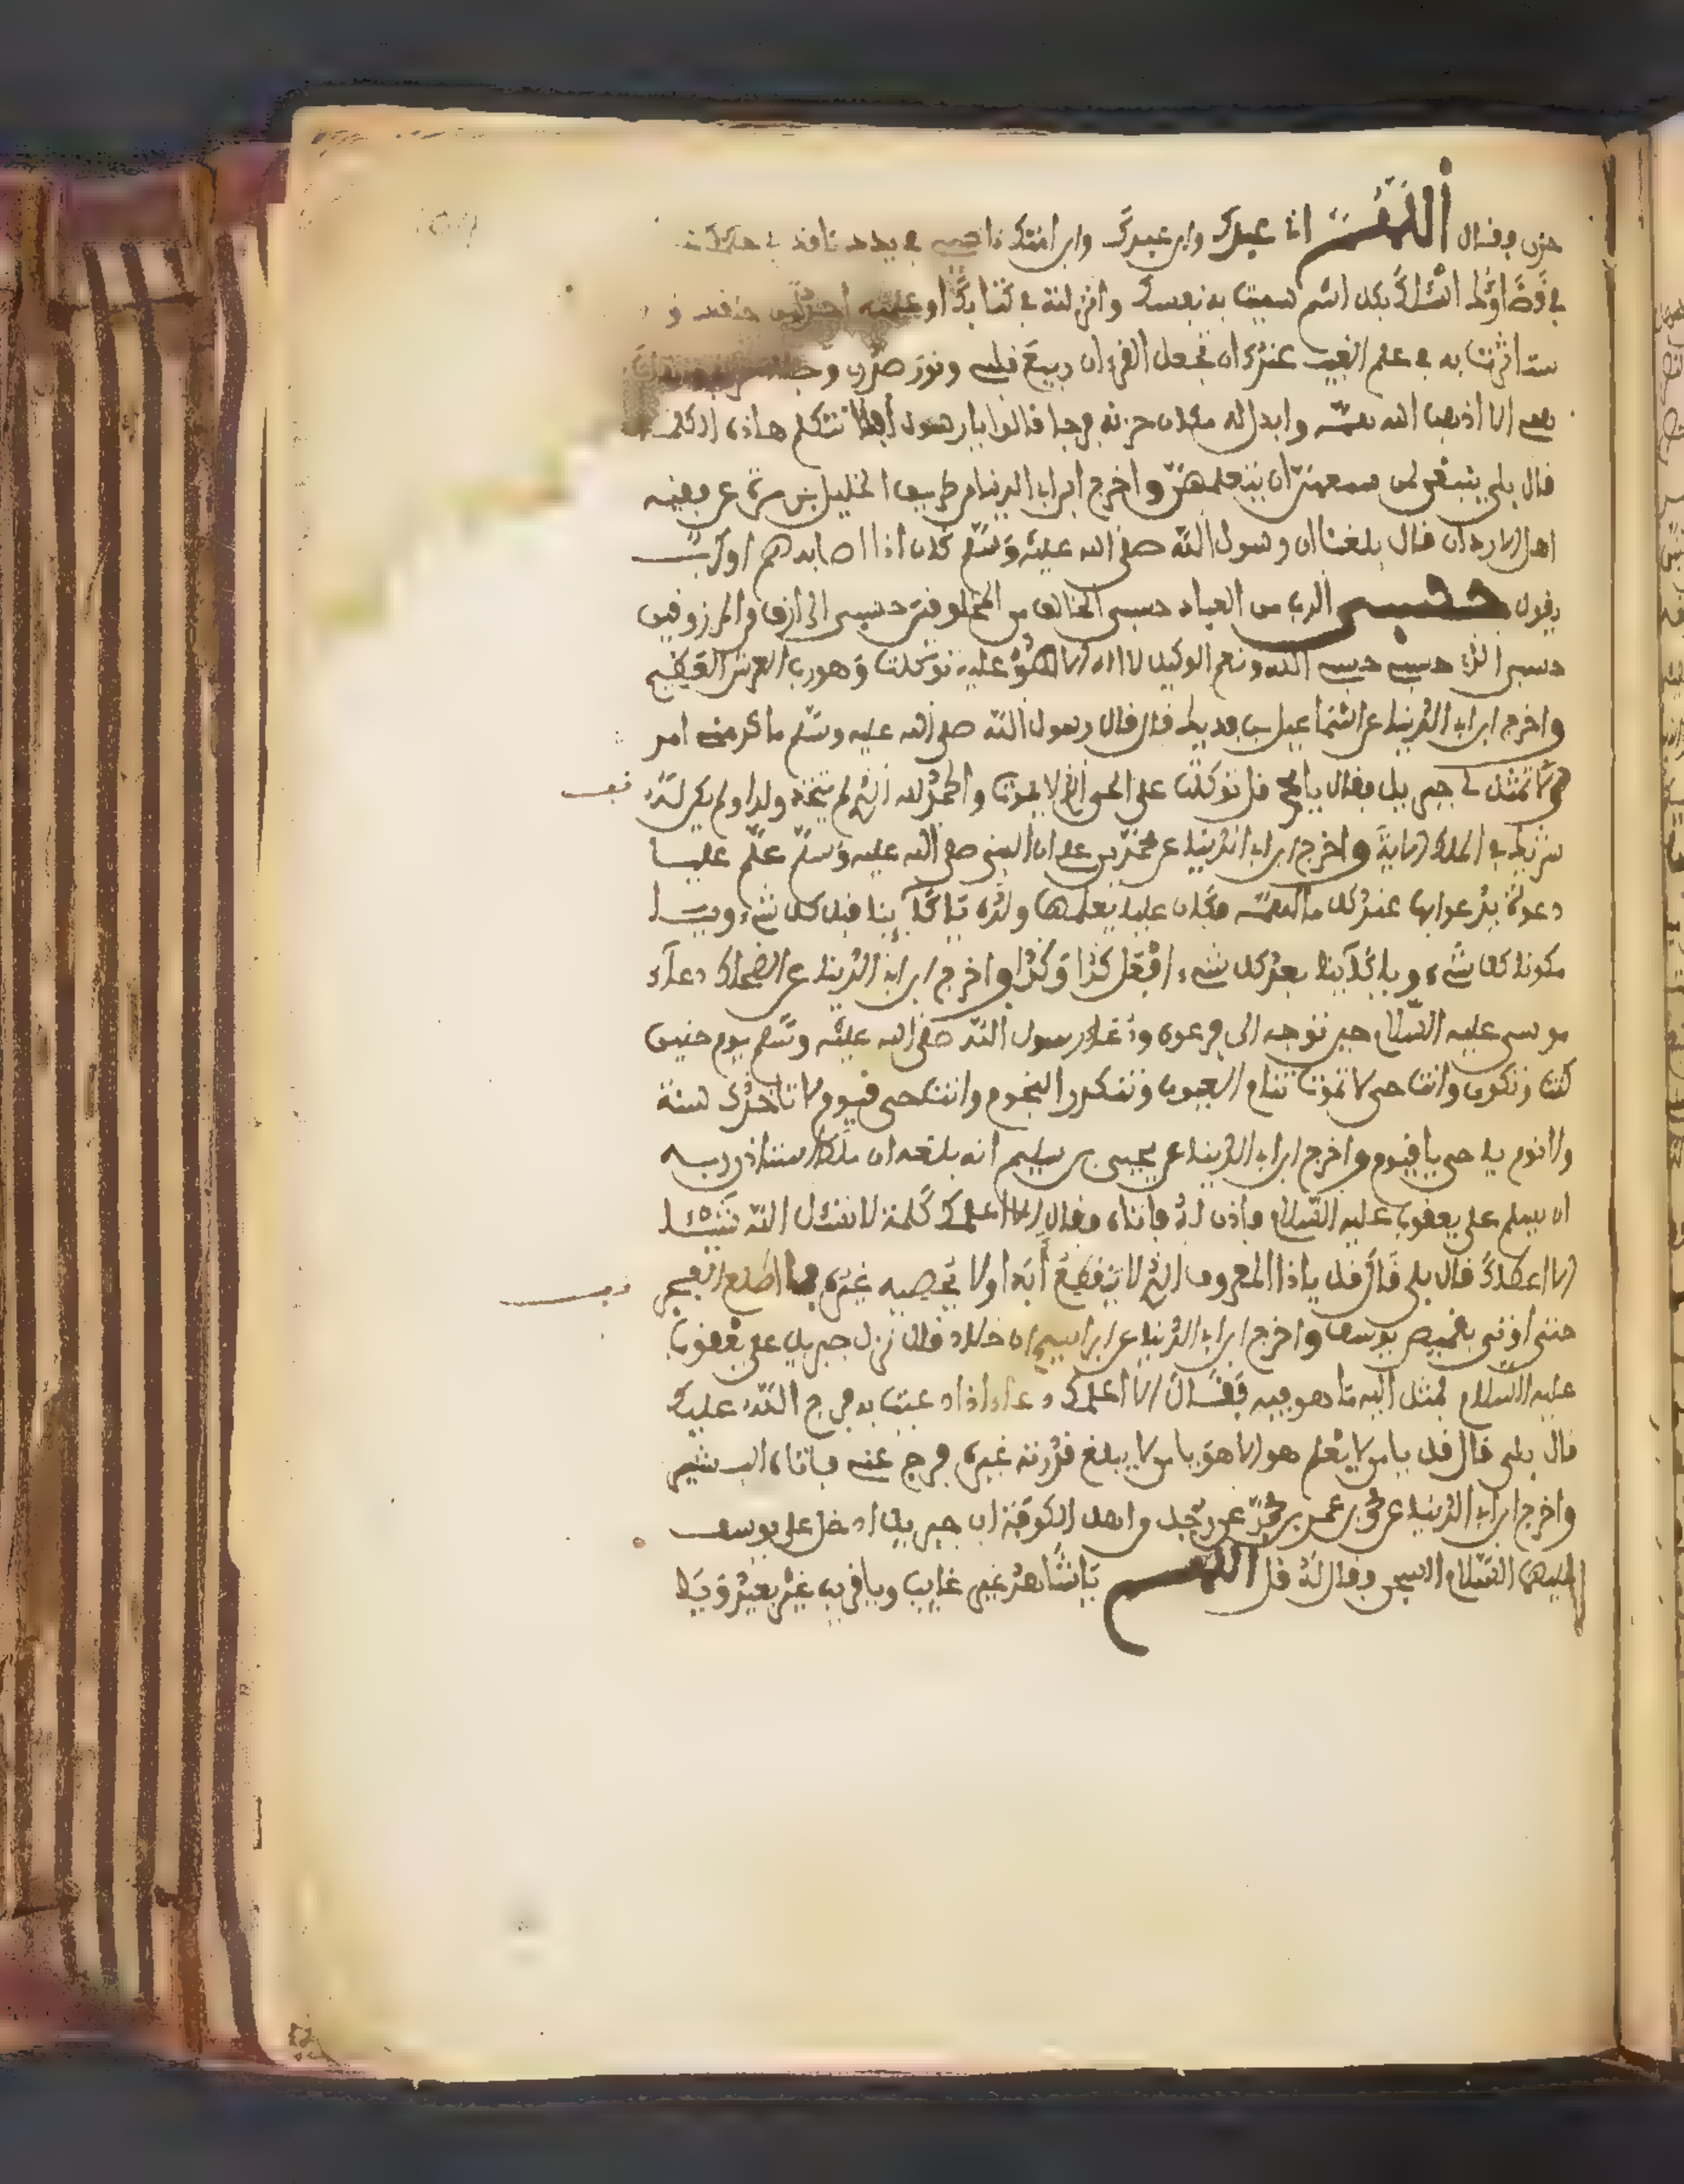 حزن فقال اللهم انا عبدك وابن عبدك وابن امتك ناصيتي في يدك نافذ في حكمك
في قضاؤك اسئلك بكل اسم سميت به نفسك وانزلته في كتابك او علمته احدا من خلقك او
ستاثرت به في علم الغيب عندك ان تجعل القرءان ربيع قلبي ونور صدري
همي الا اذهب الله همه وابدله مكان حزنه فرجا قالوا يا رسول الله افلا نتعلم هاذه الكلمات
قال بلى ينبغي لمن سمعهن ان يتعلمهن واخرج ابن ابي الدنيا من طريق الخليل بن مرة عن فقيه
اهل الاردن قال بلغنا ان رسول الله صلى الله عليه وسلم كان اذا اصابه هم او كرب
يقول حسبي الرب من العباد حسبي الخالق من المخلوقين حسبي الرازق من المرزوقين
حسبي الذي حسبي حسبي الله ونعم الوكيل لا اله الا هو عليه توكلت وهو رب العرش العظيم
واخرج ابن ابي الدنيا عن اسماعيل بن فديك قال قال رسول الله صلى الله عليه وسلم ما كربني امر
الا تمثل لي جبريل فقال يا محمد قل توكلت على الحي الذي لا يموت والحمد لله الذي لم يتخذ ولدا ولم يكن له
شريك في الملك الاية واخرج ابن ابي الدنيا عن محمد بن علي ان النبي صلى الله عليه وسلم علم عليا
دعوة يدعو بها عند كل ما اهمه فكان علي يعلمها ولده يا كاينا قبل كل شيء ويا
مكون كل شيء ويا كاينا بعد كل شيء افعل كذا وكذا واخرج ابن ابي الدنيا عن الضحاك دعاء
موسى عليه السلام حين توجه الى فرعون ودعاء رسول الله صلى الله عليه وسلم يوم حنين
كنت وتكون وانت حي لا تموت تنام العيون وتنكدر النجوم وانت حي قيوم لا تاخذك سنة
ولا نوم يا حي يا قيوم واخرج ابن ابي الدنيا عن يحيى بن سليم انه بلغه ان ملك استاذن ربه
ان يسلم على يعقوب عليه السلام فاذن له فاتاه فقال الا اعلمك كلمة لا تسئل الله شيئا
الا اعطاك قال بلى قال قل يا ذا المعروف الذي لا ينقطع ابدا ولا يحصيه غيره فما اطلع الفجر
حتى اوتي بقميص يوسف واخرج ابن ابي الدنيا عن ابراهيم بن خلاد قال نزل جبريل على يعقوب
عليه السلام فمثل اليه ما هو فيه فقال الا اعلمك دعاء اذا دعيت به فرج الله عليك
قال بلى قال قل يا من لا يعلم هو الا هو يا من لا يبلغ قدرته غيره فرج عنه فاتاه البشير
واخرج ابن ابي الدنيا عن بن عمر بن محمد عن رجل من اهل الكوفة ان جبريل دخل على يوسف
عليهما السلام السجن فقال له قل اللهم يا شاهد غير غايب ويا قريب غير بعيد ويا